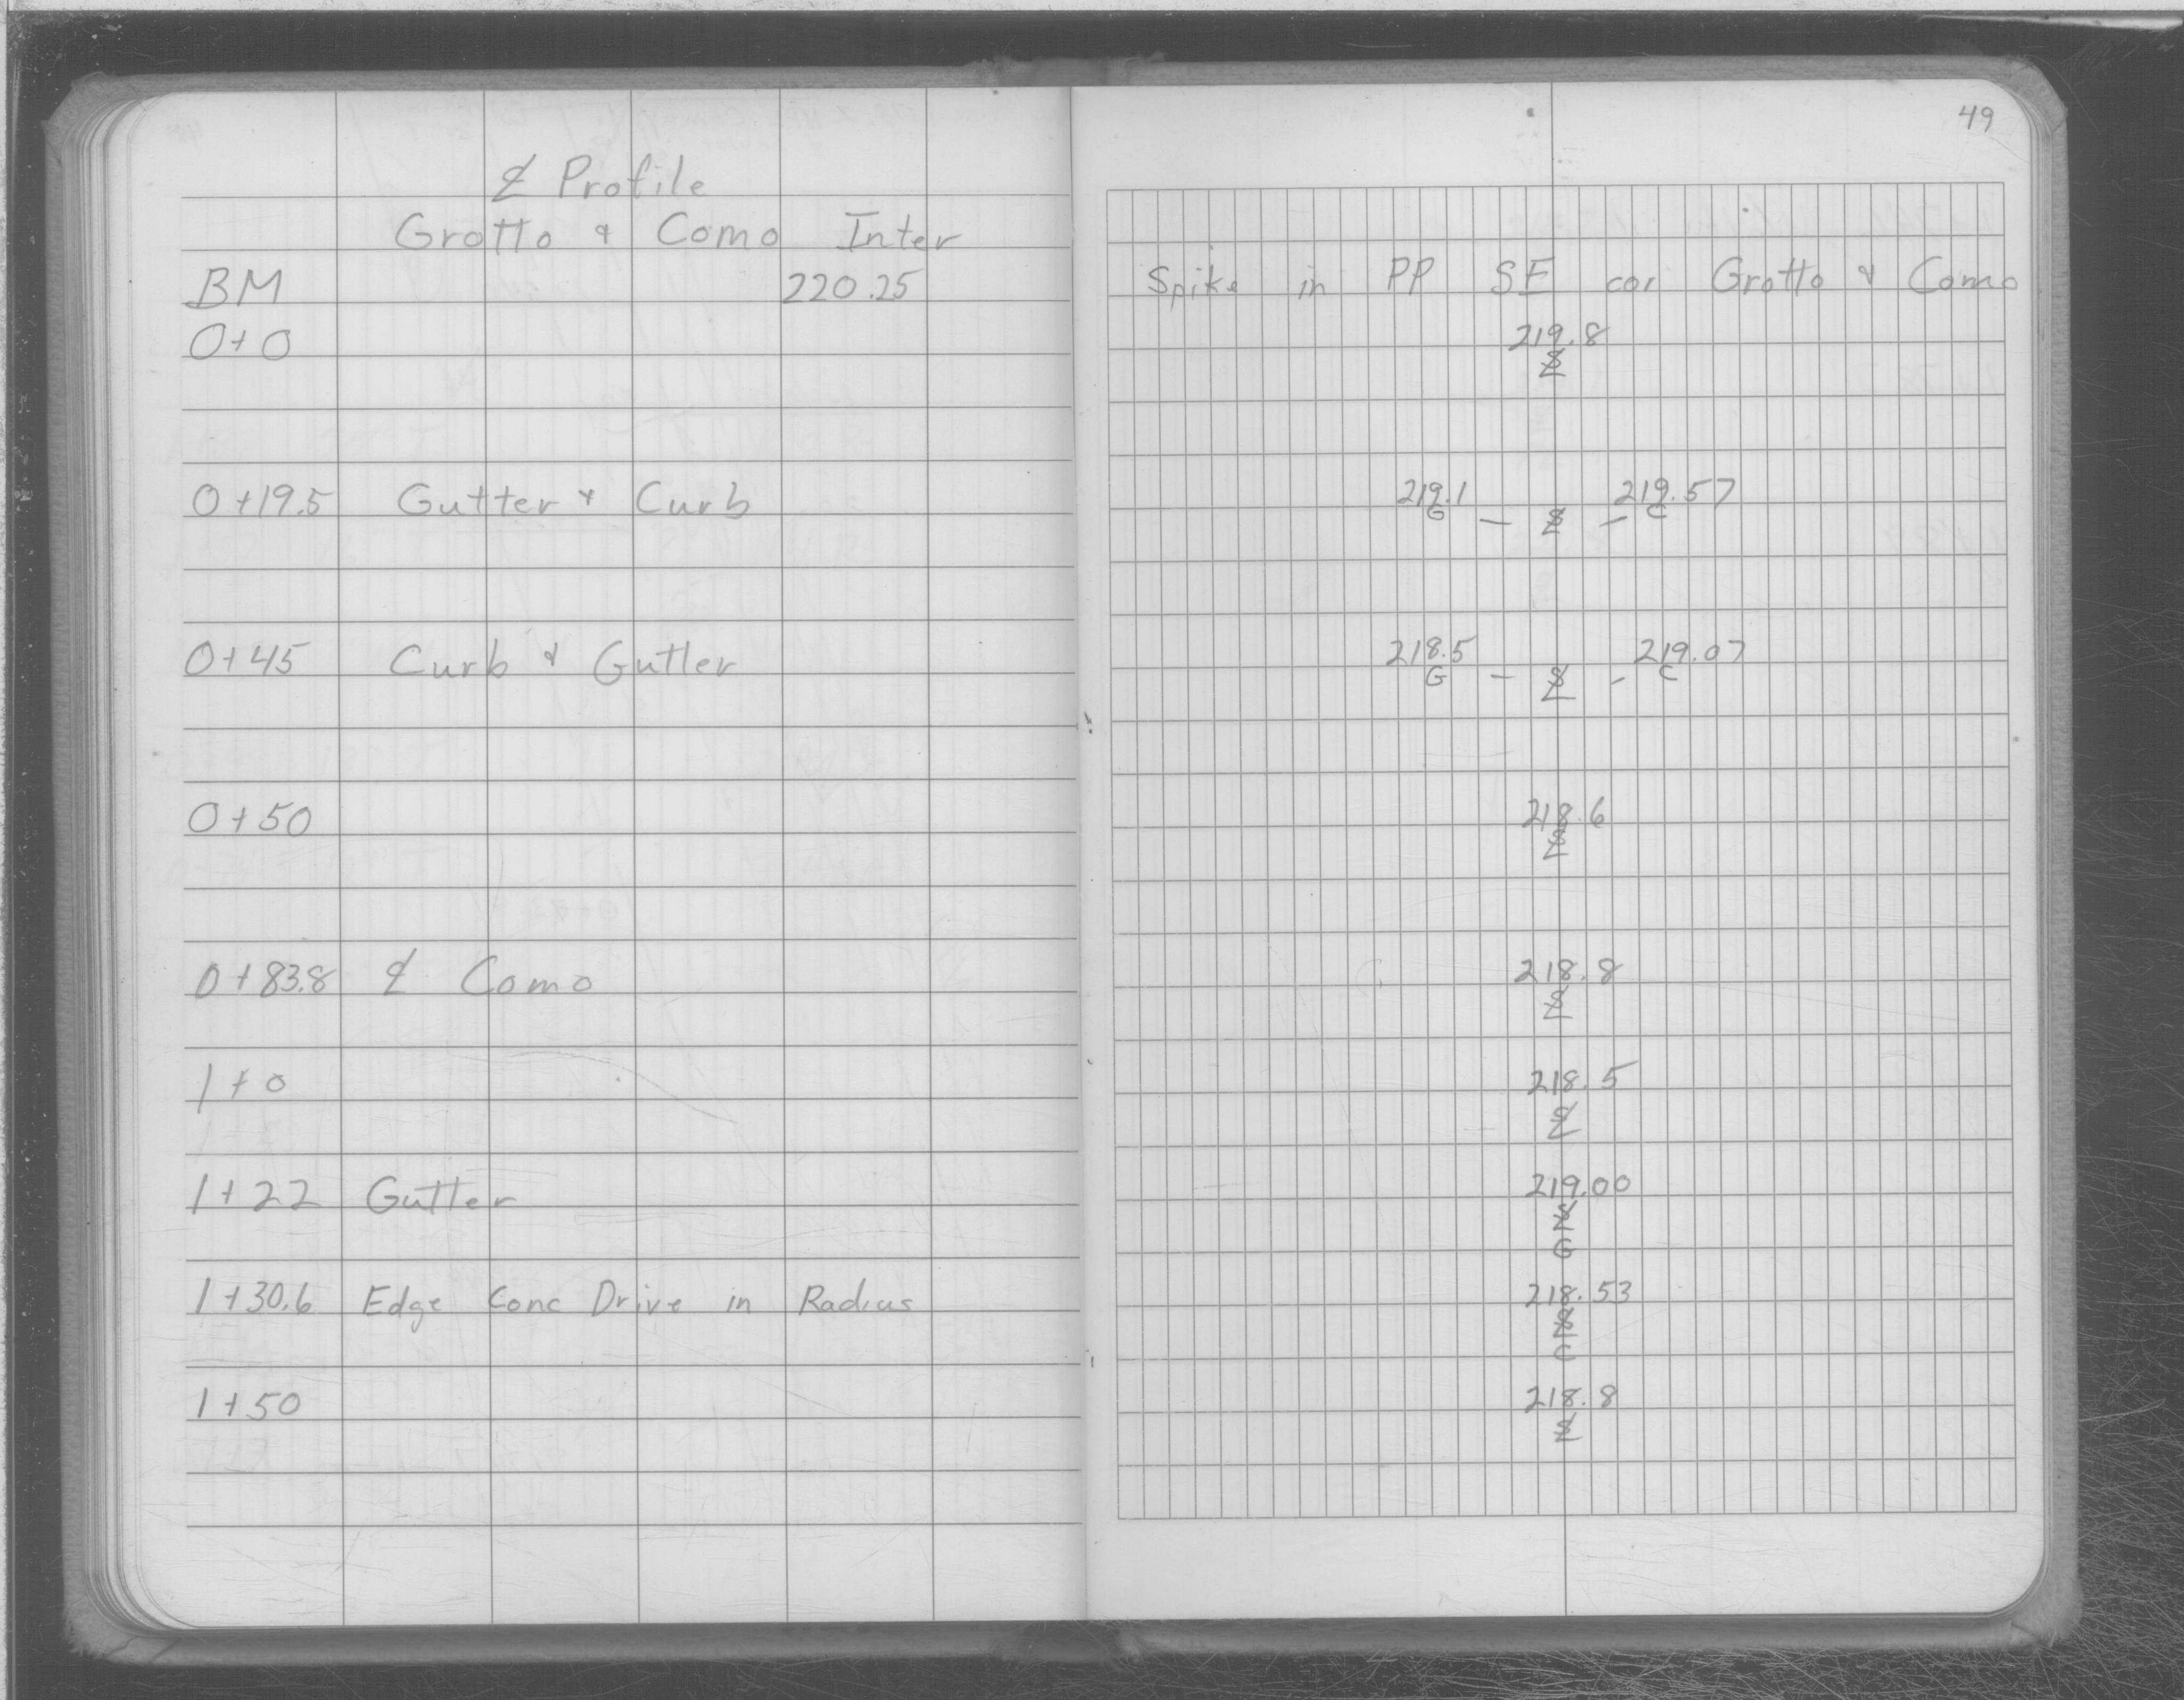 49
℄ Profile
Grotto & Como Inter
BM 220.25 Spike in PP SE cor Grotto & Como
0+0 219.8
℄
0+19.5 Gutter & Curb 219.1 219.57
G — ℄ — C
0+45 Curb & Gutter 218.5 219.07
G — ℄ - C
0+50 218.6
℄
0+83.8 ℄ Como 218.8
℄
1+0 218.5
℄
1+22 Gutter 219.00
℄
G
1+30.6 Edge Conc Drive in Radius 218.53
℄
C
1+50 218.8
℄